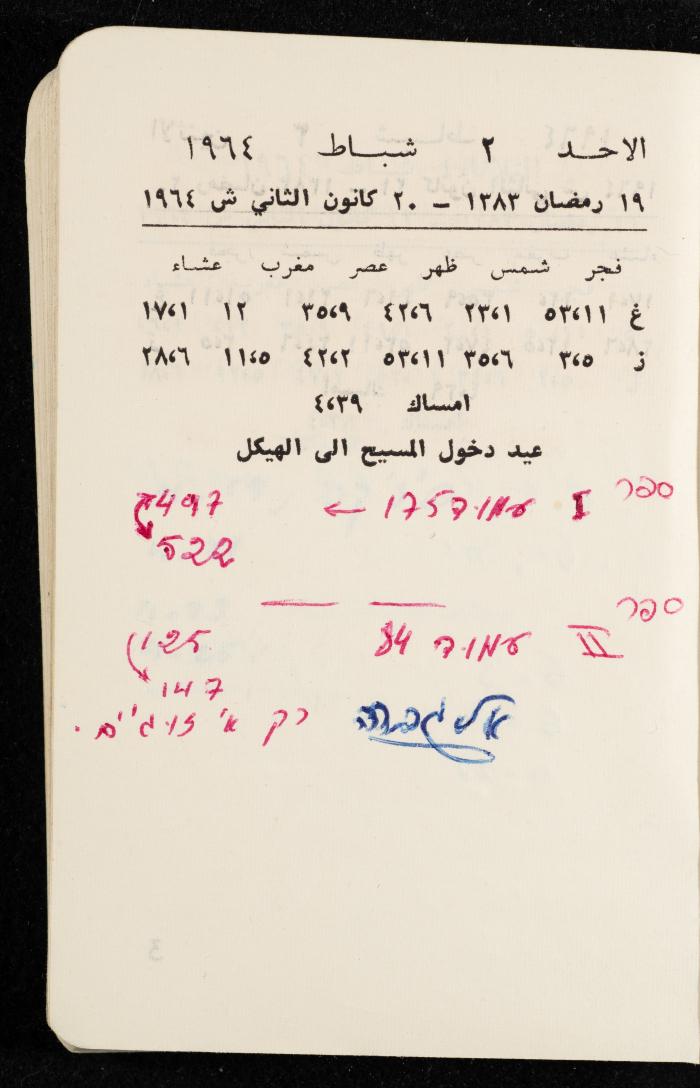 الاحد ٢ شباط ١٩٦٤
١٩ رمضان ١٣٨٣ - ٢٠ كانون الثاني ش ١٩٦٤
فجر شمس ظهر عصر مغرب عشاء
غ ٥٣،١١ ٢٣،١ ٤٢،٦ ٣٥،٩ ١٢ ١٧،١
ز ٣،٥ ٣٥،٦ ٥٣،١١ ٤٢،٢ ١١،٥ ٢٨،٦
امساك ٤،٣٩
عيد دخول المسيح الى الهيكل
ספר I עמוד 175 ← 497
522
ספר II עמוד 84 — — 125
147
רק א' זוגיים.